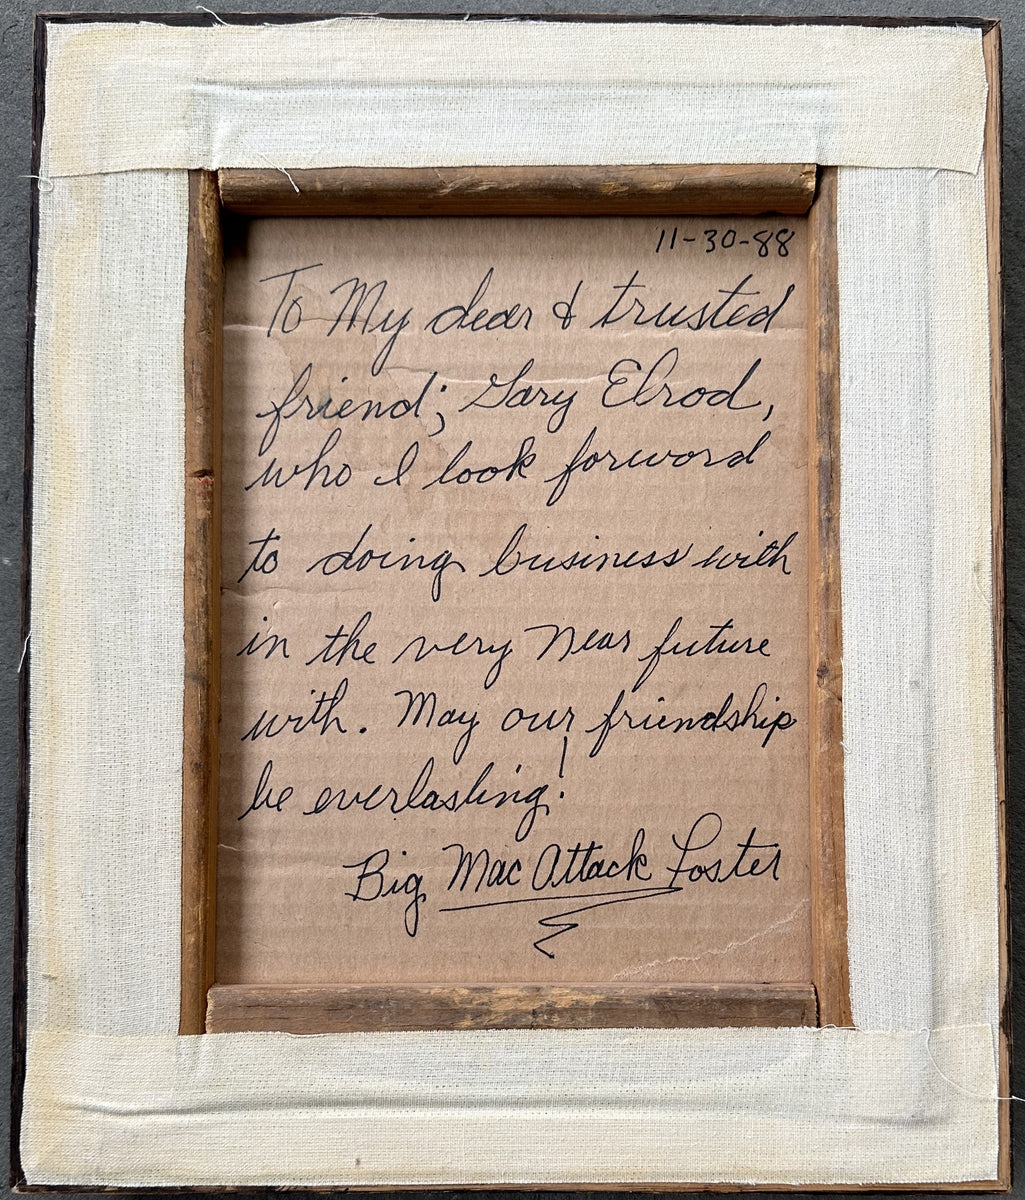 11-30-88
To My dear & trusted
friend; Gary Elrod,
who I look forword
to doing business with
in the very near future
with. May our friendship
be everlasting!
Big Mac Attack Foster